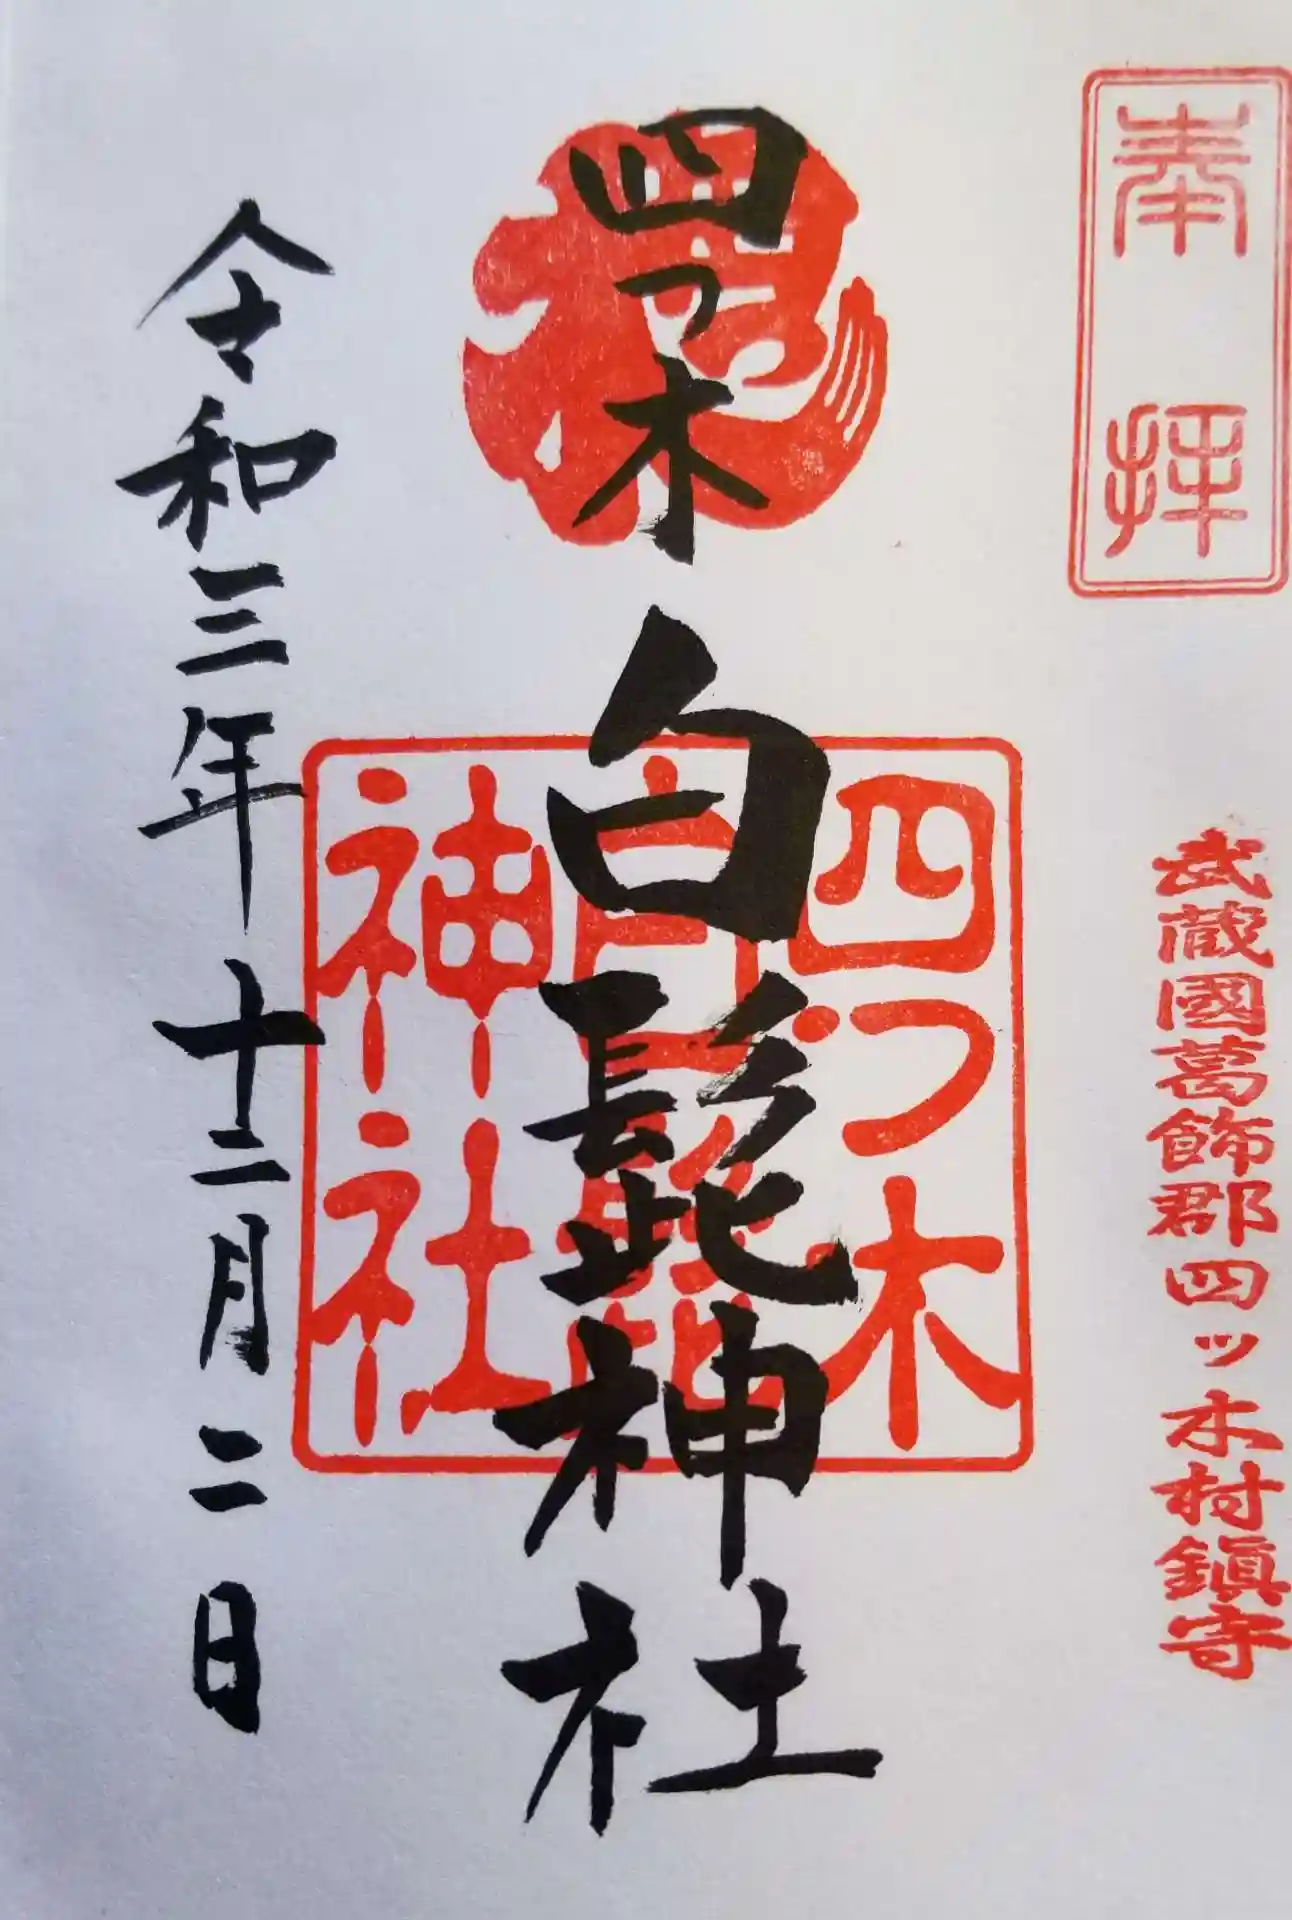 奉拝
武蔵國葛飾郡四ッ木村鎮守
四つ木白髭神社
四つ木
白髭
神社
令和三年十二月二日